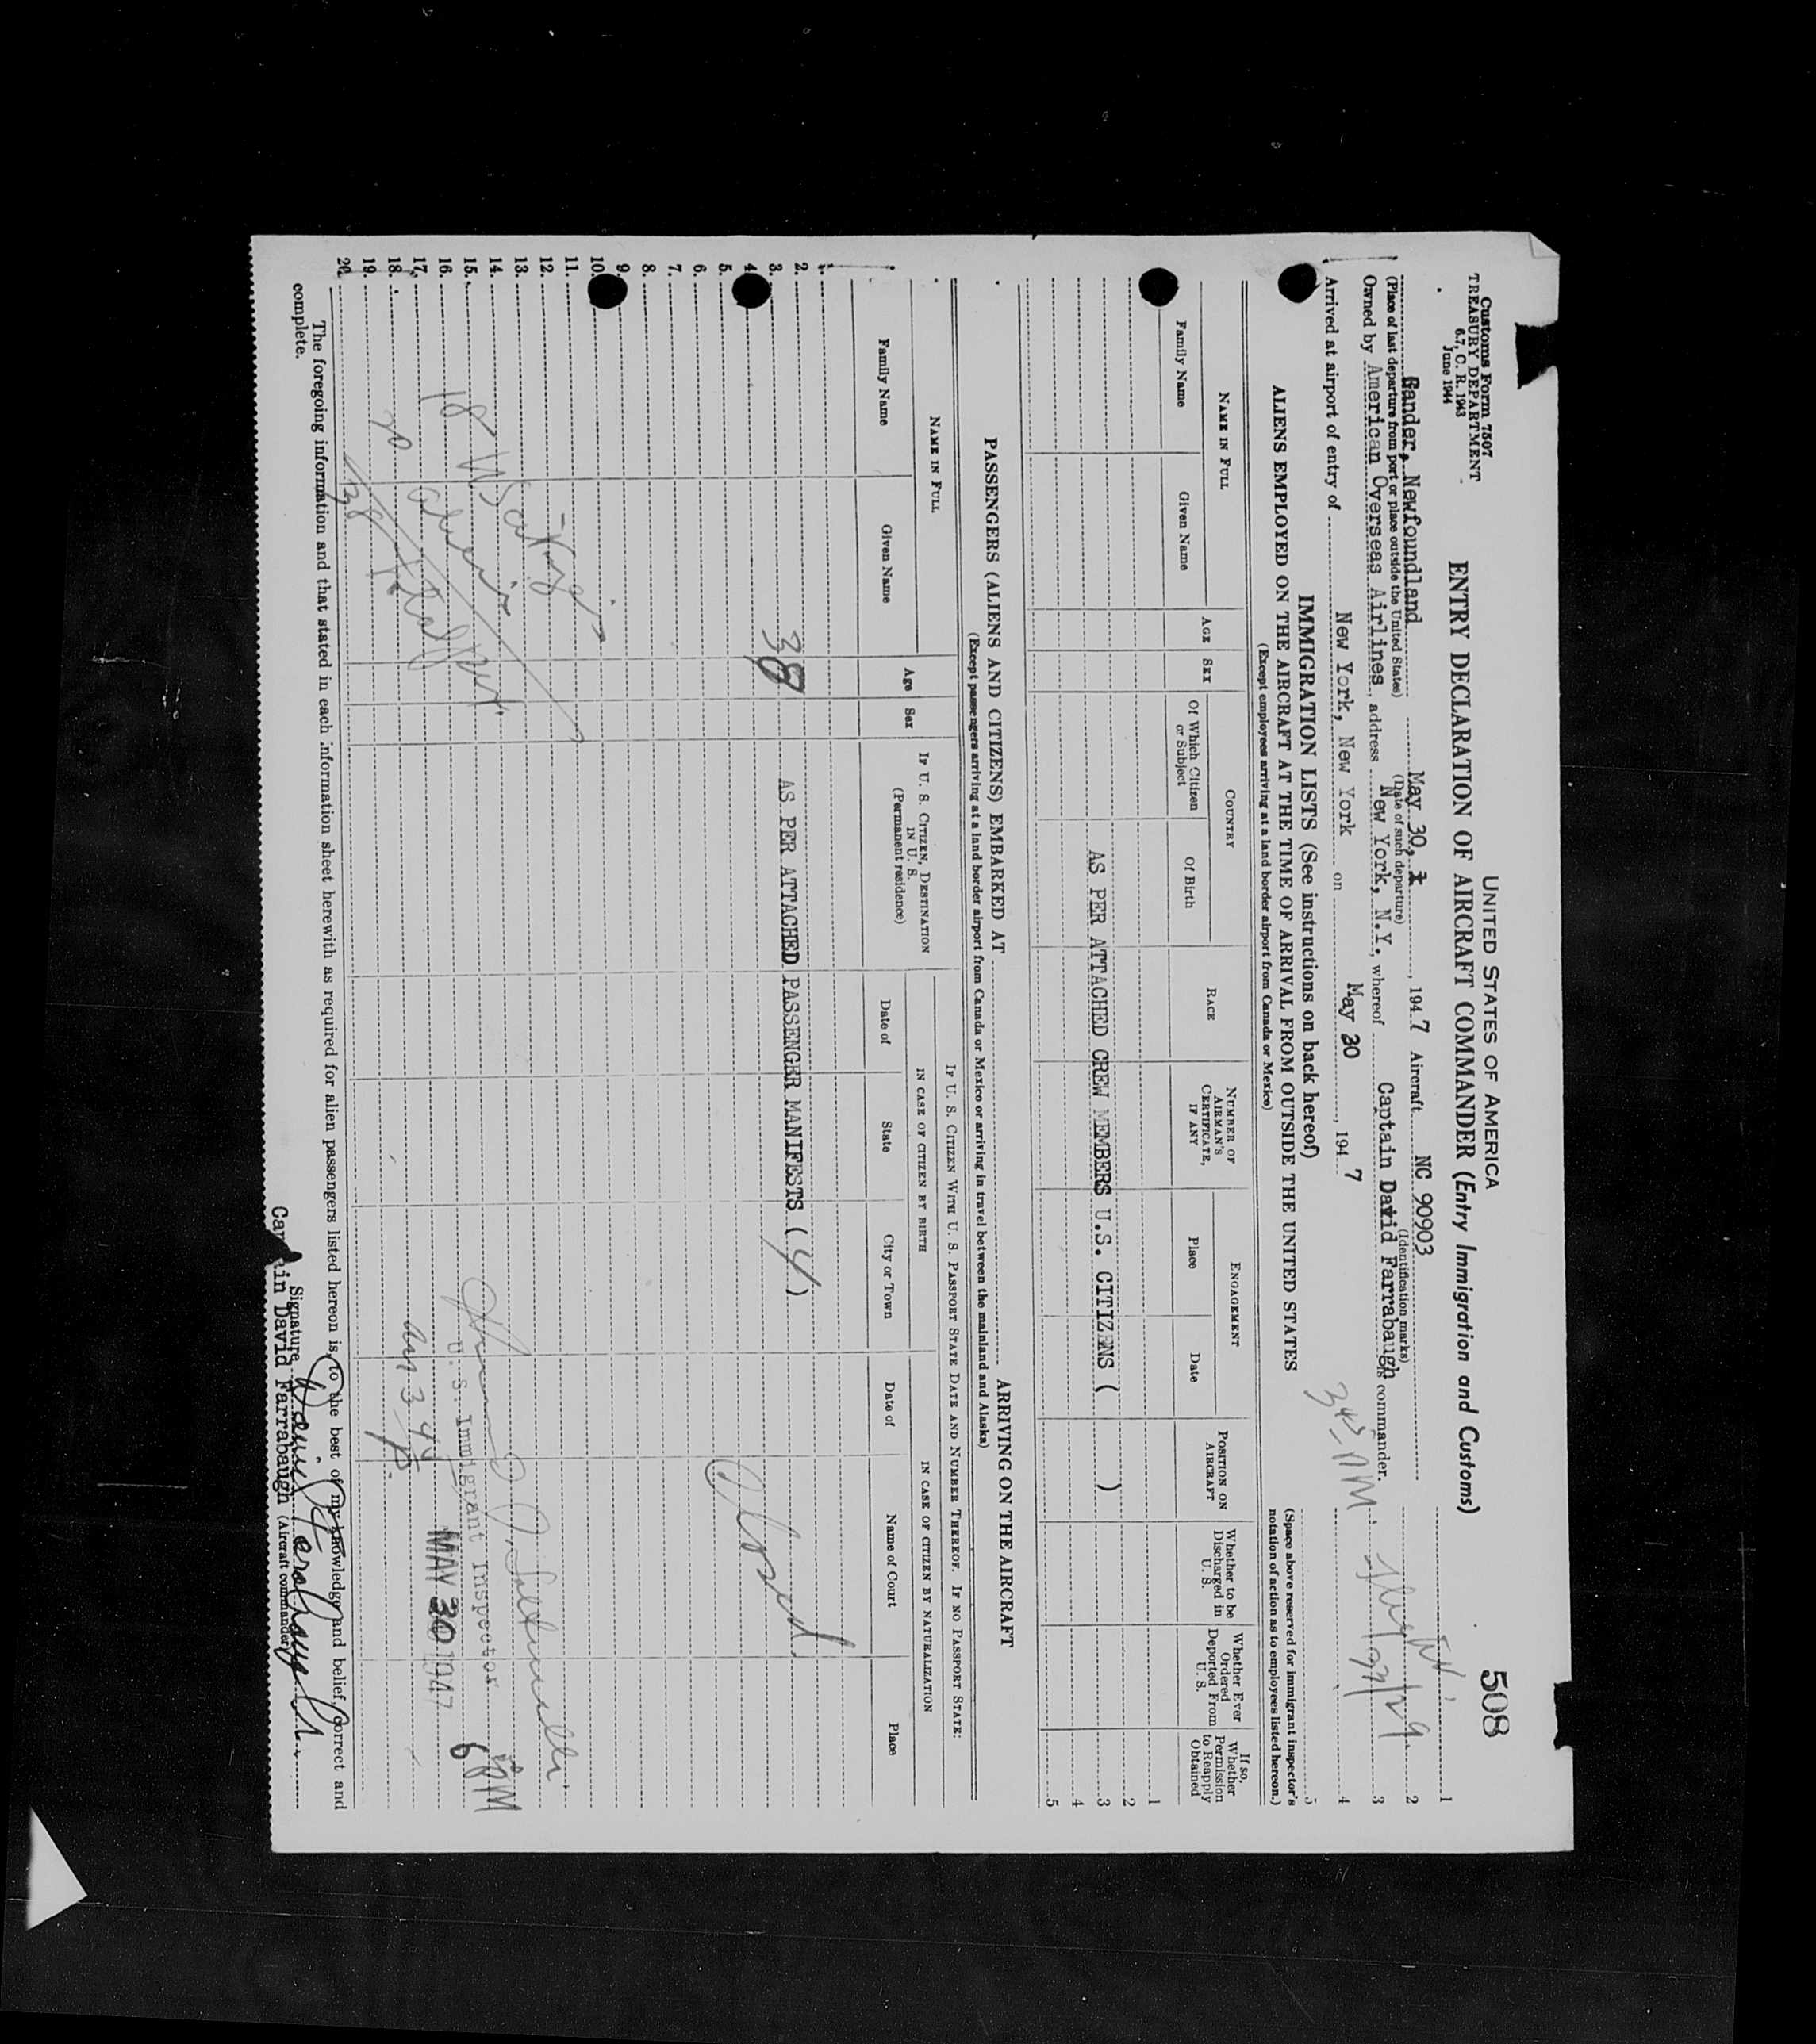 Customs Form 7507
TREASURY DEPARTMENT
6.7, C. R. 1943
June 1944
UNITED STATES OF AMERICA
508
ENTRY DECLARATION OF AIRCRAFT COMMANDER (Entry Immigration and Customs)
Gander, Newfoundland May 30, 1947 Aircraft NC 90903
(Place of last departure from port or place outside the United States) (Date of such departure) (Identification marks)
Owned by American Overseas Airlines, address New York, N.Y., whereof Captain David Farrabaugh commander.
Arrived at airport of entry of New York, New York on May 30, 1947
1
2
3
4
5
IMMIGRATION LISTS (See instructions on back hereof)
(Space above reserved for immigrant inspector's notation of action as to employees listed hereon.)
ALIENS EMPLOYED ON THE AIRCRAFT AT THE TIME OF ARRIVAL FROM OUTSIDE THE UNITED STATES
(Except employees arriving at a land border airport from Canada or Mexico)
NAME IN FULL
Family Name
Given Name
AGE
SEX
COUNTRY
Of Which Citizen or Subject
Of Birth
RACE
NUMBER OF AIRMAN'S CERTIFICATE, IF ANY
ENGAGEMENT
Place
Date
POSITION ON AIRCRAFT
Whether to be Discharged in U. S.
Whether Ever Ordered Deported From U. S.
If so, Whether Permission to Reapply Obtained
1
2
AS PER ATTACHED CREW MEMBERS U.S. CITIZENS ( ) 3
4
5
PASSENGERS (ALIENS AND CITIZENS) EMBARKED AT ARRIVING ON THE AIRCRAFT
(Except passengers arriving at a land border airport from Canada or Mexico or arriving in travel between the mainland and Alaska)
NAME IN FULL
Family Name
Given Name
Age
Sex
IF U. S. CITIZEN, DESTINATION IN U. S. (Permanent residence)
IF U. S. CITIZEN WITH U. S. PASSPORT STATE DATE AND NUMBER THEREOF. IF NO PASSPORT STATE:
IN CASE OF CITIZEN BY BIRTH
Date of
State
City or Town
IN CASE OF CITIZEN BY NATURALIZATION
Date of
Name of Court
Place
1.
2.
3. 38 AS PER ATTACHED PASSENGER MANIFESTS (4)
4.
5. Closed
6.
7.
8.
9.
10.
11.
12.
13.
14.
15. U. S. Immigrant Inspector 6 PM
16. MAY 30 1947
17. 18
18. 20
19.
20. 38 Total
The foregoing information and that stated in each information sheet herewith as required for alien passengers listed hereon is, to the best of my knowledge and belief, correct and
complete.
Signature David Farrabaugh
Captain David Farrabaugh (Aircraft commander)